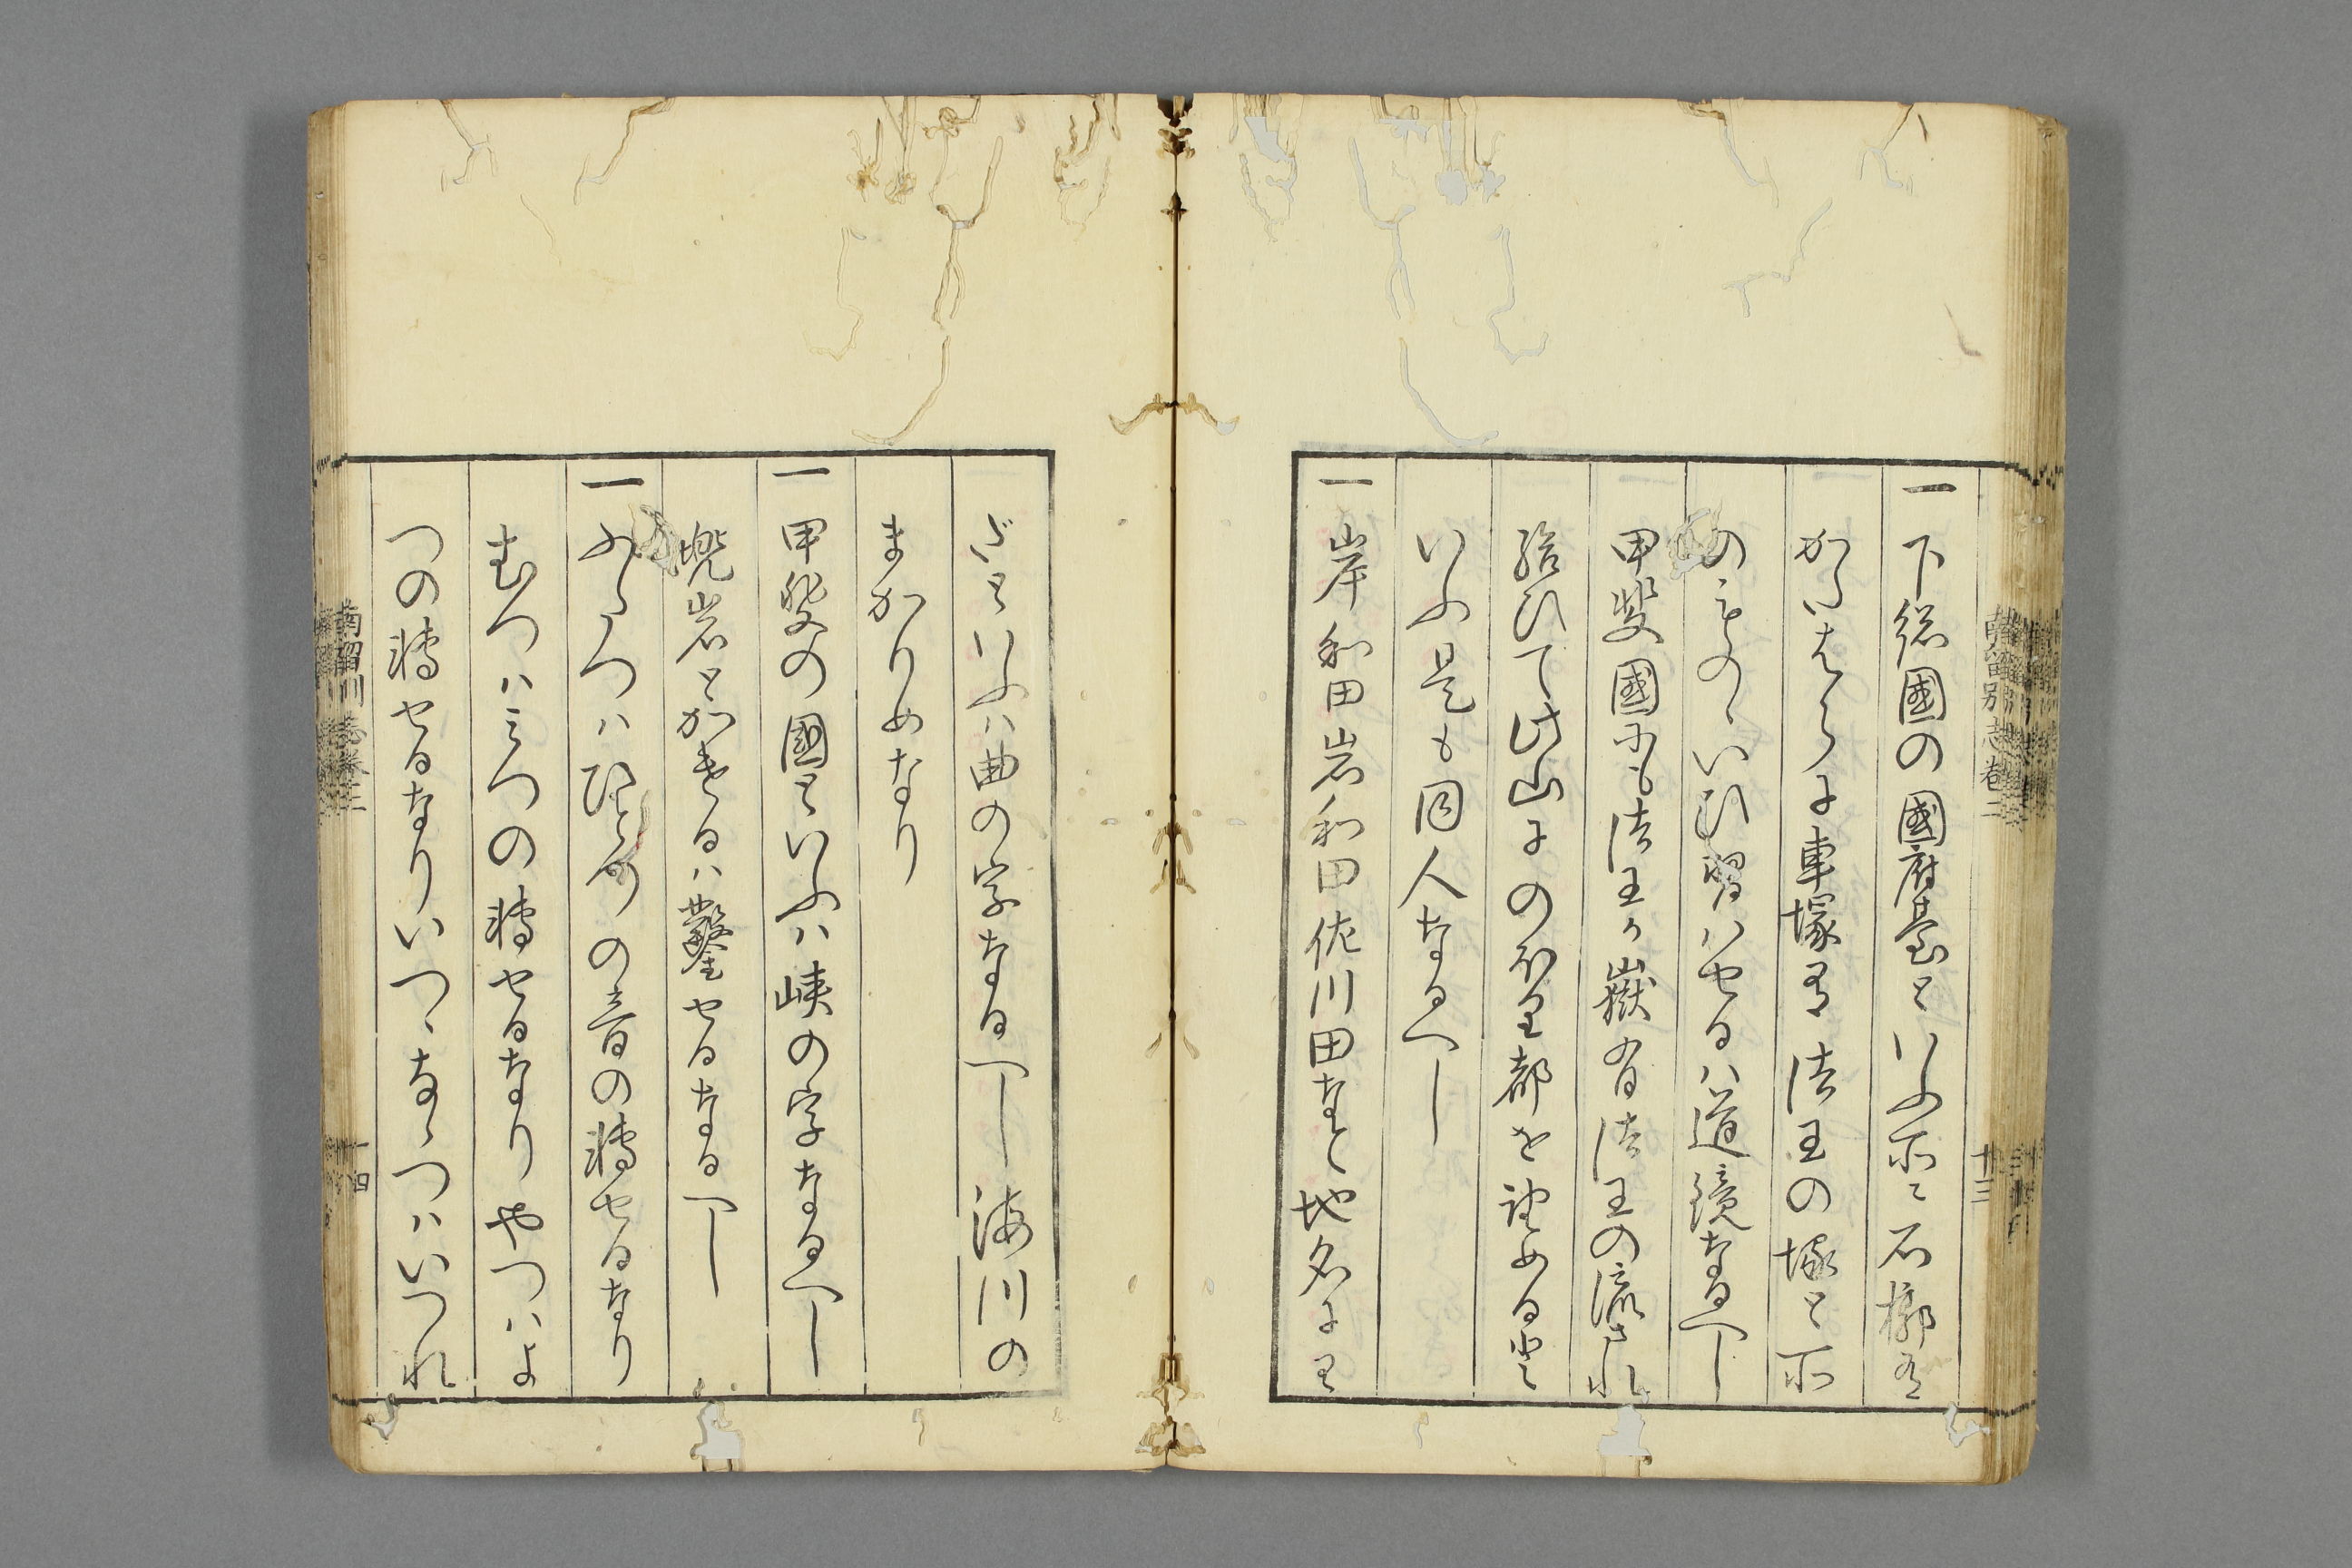 一 下總國の國府臺といふ所に石槨有
かたはらに車塚有法王の塚と所
のものゝいひ習はせるは道鏡なるへし
甲斐國にも法王か嶽有法王の流され
給ひて此山にのほり都を望める云と
いふ是も同人なるへし
一 岸和田岩和田佐川田なと地名にわ
だといふは曲の字なるへし海川の
まかりめなり
一 甲斐の國といふは峡の字なるへし
堄岩とかけるは鑿せるなるへし
一 ふたつはひとつの音の轉せるなり
むつはみつの轉せるなりやつはよ
つの轉せるなりいつゝなゝつはいつれ
南留別志巻二 十三
南留別志巻二 十四